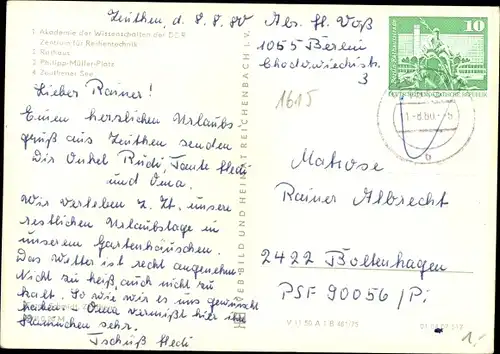 Zeuthen, d. 8.8.80
1. Akademie der Wissenschaften der DDR
Zentrum für Rechentechnik
2. Rathaus
3. Philipp-Müller-Platz
4. Zeuthener See
Lieber Rainer!
Einen herzlichen Urlaubs-
gruß aus Zeuthen senden
Dir Onkel Rudi, Tante Hedi
und Oma.
Wir verleben z. Zt. unsere
restlichen Urlaubstage in
unserem Gartenhäuschen.
Das Wetter ist recht angenehm.
Nicht zu heiß, auch nicht zu
kalt. So wie wir es uns gewünscht
haben. Oma vermißt hier ihr
Kaninchen sehr.
Tschüß Hedi
VEB BILD UND HEIMAT REICHENBACH I. V.
Abs. H. Voß
1055 Berlin
Chodowieckistr.
3
1615
10
DEUTSCHE DEMOKRATISCHE REPUBLIK
Matrose
Rainer Albrecht
2422 Boltenhagen
PSF 90056/Pi
V 11 50 A 1 B
1,-